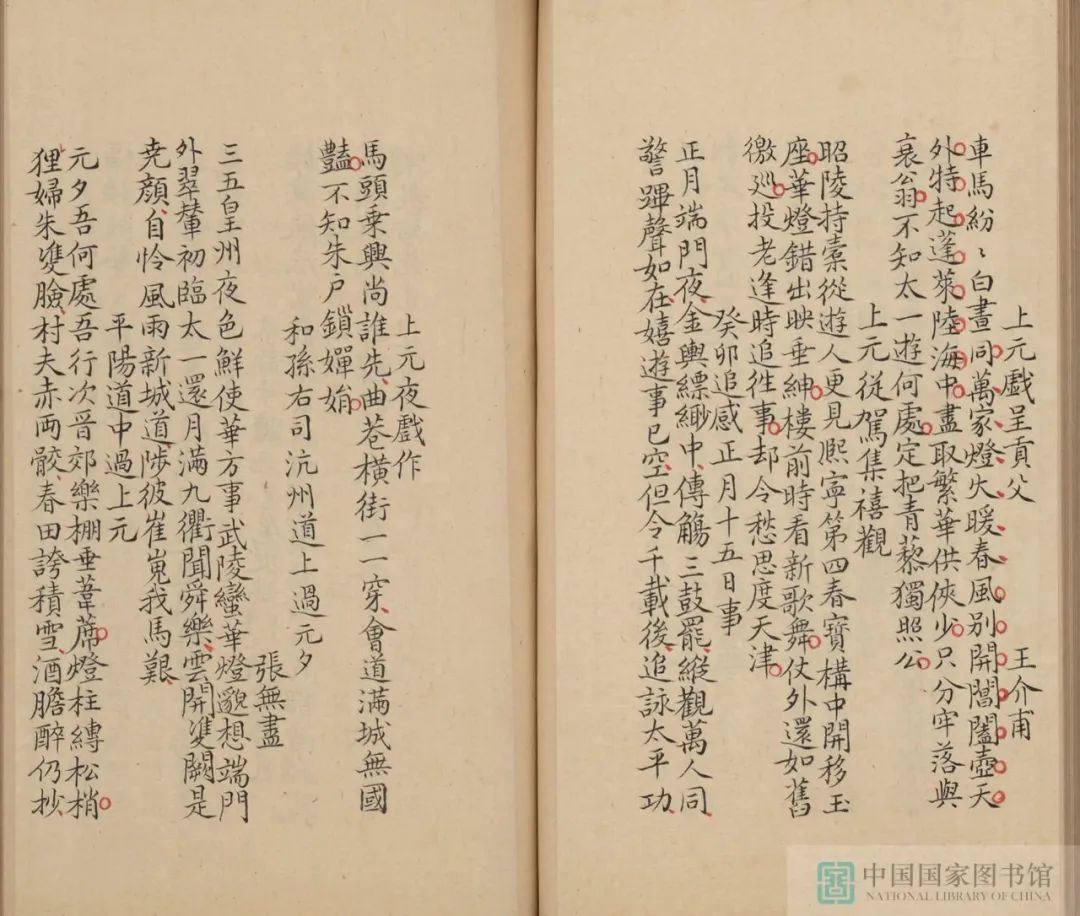 上元戲呈貢父
王介甫
車馬紛〻白晝同萬家燈火暖春風別開閶闔壺天
外特起蓬萊陸海中盡取繁華供俠少只分牢落與
衰翁不知太一遊何處定把青藜獨照公
上元從駕集禧觀
昭陵持橐從遊人更見熙寧第四春寶構中開移玉
座華燈錯出映垂紳樓前時看新歌舞仗外還如舊
徼廵投老逢時追徃事却令愁思度天津
癸卯追感正月十五日事
正月端門夜金輿縹緲中傳觴三鼓罷縱觀萬人同
警蹕聲如在嬉遊事已空但令千載後追詠太平功
上元夜戲作
馬頭乗興尚誰先曲巷橫街一一穿會道滿城無國
豔不知朱户鎖嬋娟
和孫右司沆州道上過元夕
張無盡
三五皇州夜色鮮使華方事武陵蠻華燈邈想端門
外翠輦初臨太一還月滿九衢聞舜樂雲開雙闕是
堯顏自怜風雨新城道陟彼崔嵬我馬艱
平陽道中過上元
元夕吾何處吾行次晉郊樂棚垂葦蓆燈柱縛松梢
狸婦朱雙臉村夫赤兩骹春田誇積雪酒膽醉仍抄
中国国家图书馆
NATIONAL LIBRARY OF CHINA